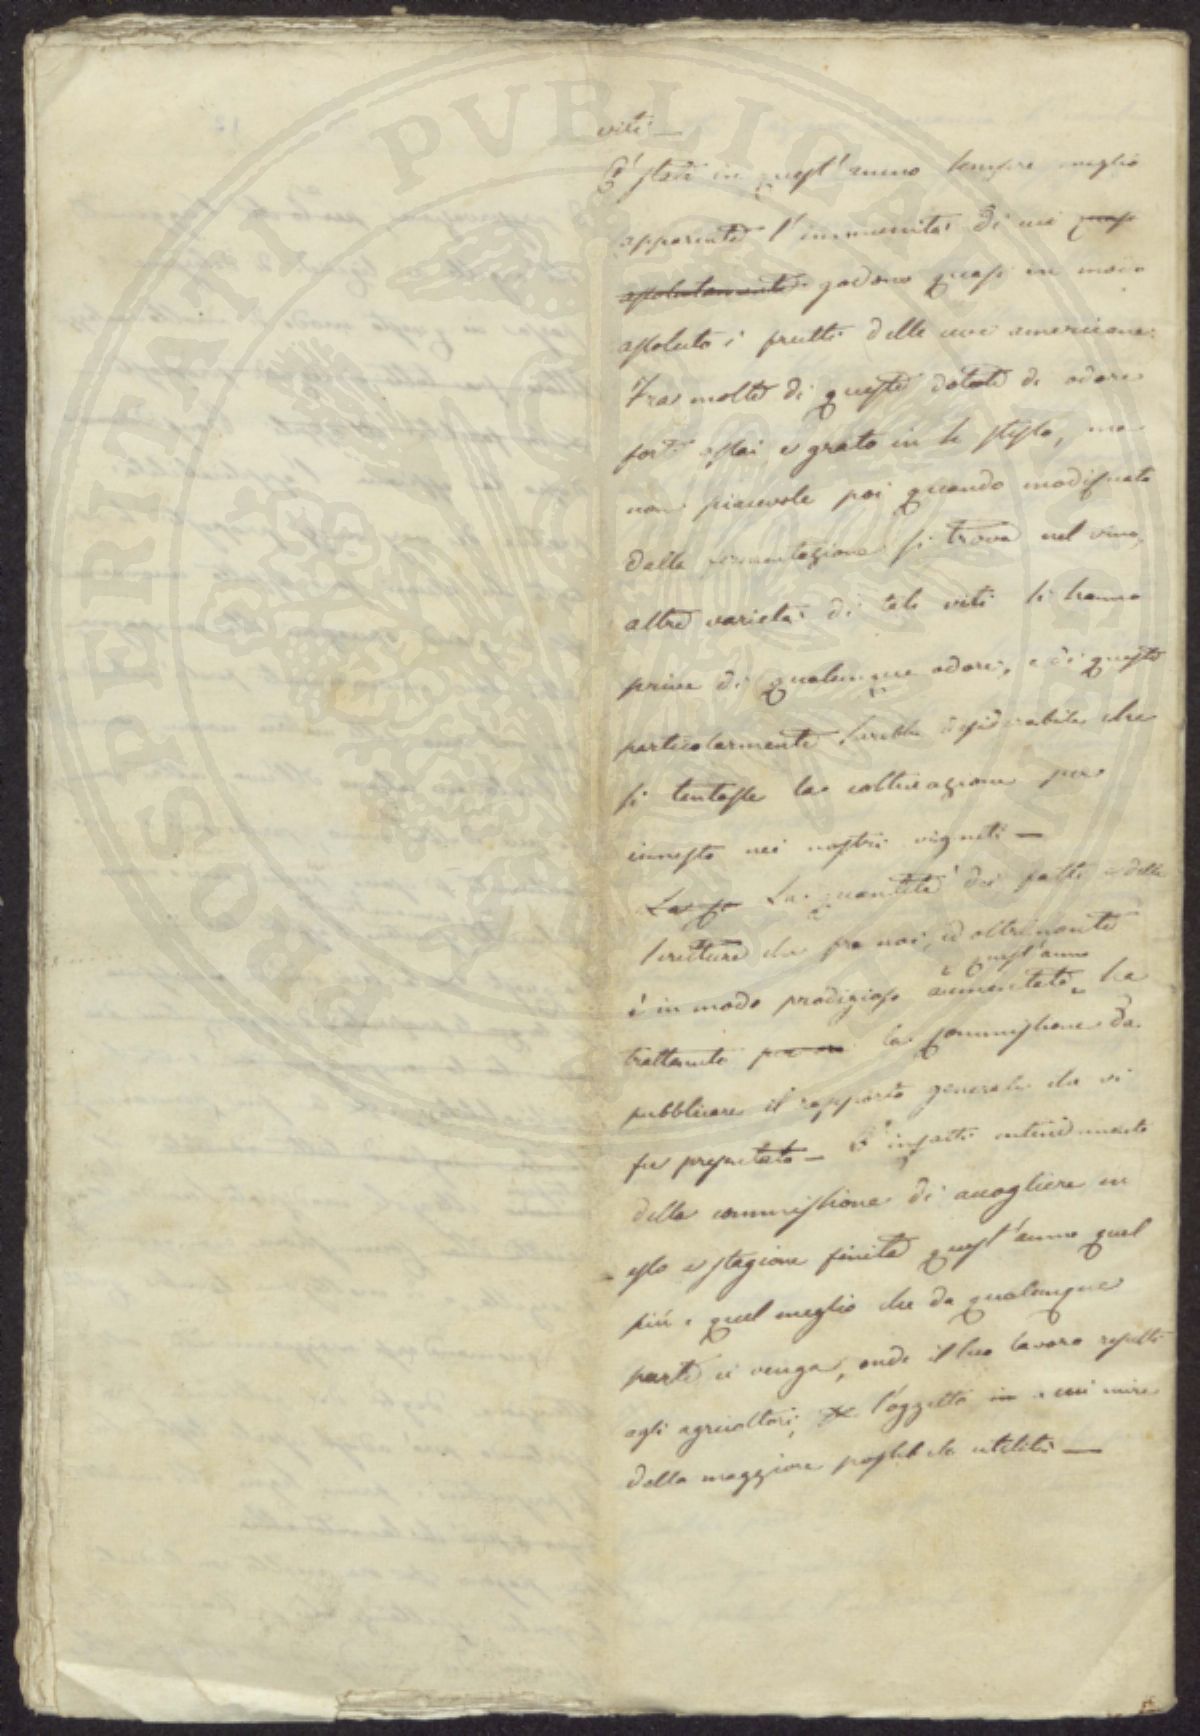 viti —
E' stata in quest'anno sempre meglio
apparente l'immunità di cui quasi
assolutamente godono quasi in modo
assoluto i frutti delle uve americane.
Fra molte di queste dotate di odore
forte assai e grato in se stesso, ma
non piacevole poi quando modificato
dalla fermentazione si trova nel vino,
altre varietà di tali viti si hanno
prive di qualunque odore, e di queste
particolarmente sarebbe desiderabile che
si tentasse la coltivazione per
innesto nei nostri vigneti —
La quantità dei fatti e delle
scritture che fra noi, ed oltremonte
è in modo prodigioso aumentata quest'anno ha
trattenuto la Commissione da
pubblicare il rapporto generale che vi
fu presentato — E' infatti intendimento
della commissione di accogliere in
esso a stagione finita quest'anno quel
più e quel meglio che da qualunque
parte ci venga, onde il suo lavoro resulti
agli agricoltori, l'oggetto a cui mira
della maggiore possibile utilità —
PROSPERITATI PVBLICAE